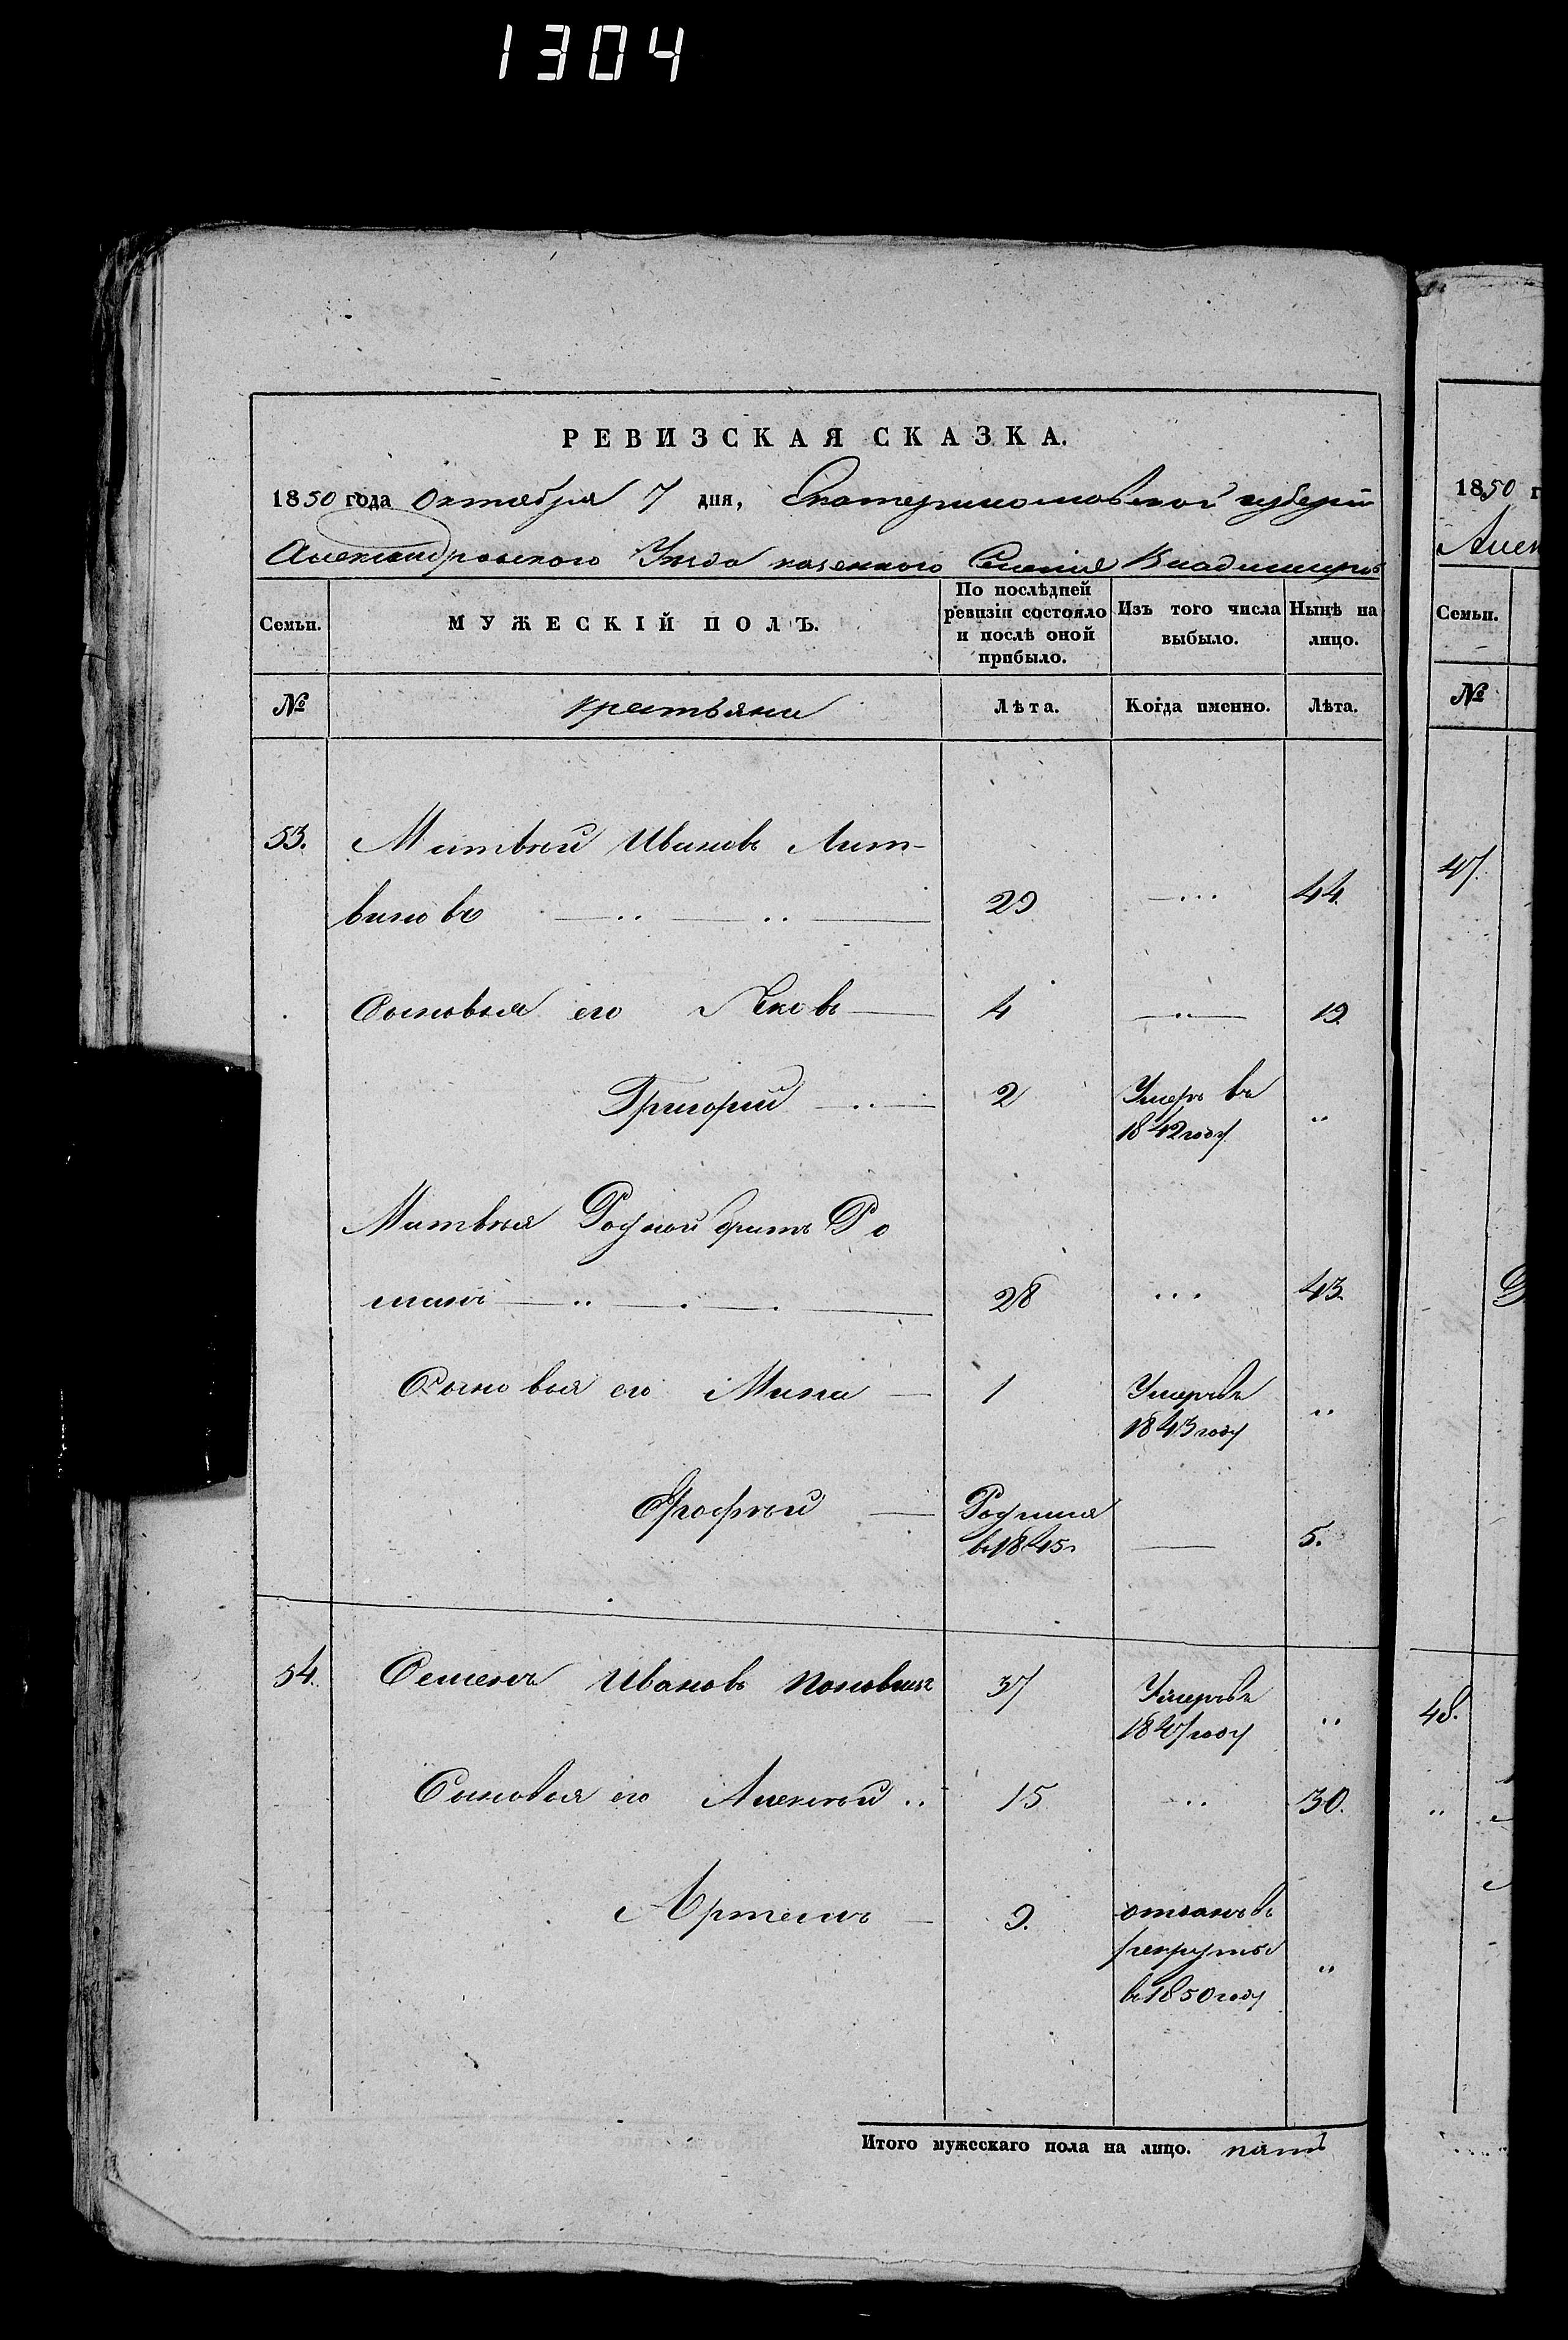 1304
РЕВИЗСКАЯ СКАЗКА.
1850 года Октября 7 дня, Екатеринославской губерніи
Александровского Уезда казенного Селенія Владимировки
Семьи. МУЖЕСКІЙ ПОЛЪ. По послѣдней ревизіи состояло и послѣ оной прибыло. Изъ того числа выбыло. Нынѣ на лицо.
№ крестьяни Лѣта. Когда именно. Лѣта.
53. Матвѣй Ивановъ Лит-
виновъ 29 44.
Сыновья его Яковъ 4 19.
Григорій 2 Умеръ въ
1842 году
Матвѣя Родной братъ Ро
манъ 28 43.
Сыновья его Мина 1 Умеръ въ
1843 году
Ерофѣй Родился
в 1845 5.
54. Семенъ Ивановъ 37 Умеръ въ
1847 году
Сыновья его Алексѣй 15 30.
Артемъ 9. отданъ въ
рекруты
въ 1850 году
Итого мужескаго пола на лицо. пять
1850 г
Алек
Семьи.
№
47.
48.